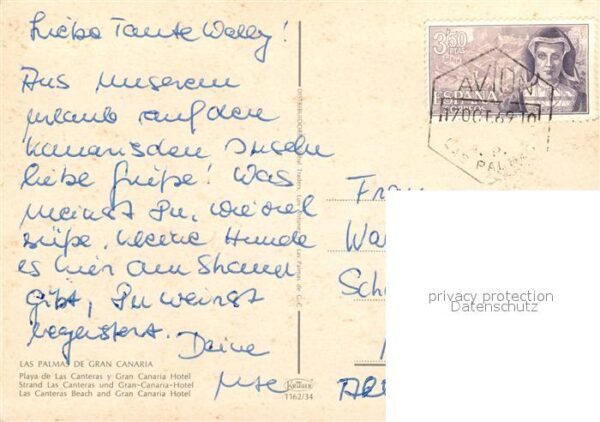 Liebe Tante Wally!
Aus unserem
Urlaub auf den
Kanarischen Inseln
liebe Grüße! Was
meinst Du, wieviel
süße, kleine Hunde
es hier am Strand
gibt, Du wärst
begeistert.
Deine
Frau
3'50
PTAS
ESPAÑA
CORREOS
AVION
17 OCT. 69
LAS PALMAS
LAS PALMAS DE GRAN CANARIA
Playa de Las Canteras y Gran Canaria Hotel
Strand Las Canteras und Gran-Canaria-Hotel
Las Canteras Beach and Gran Canaria Hotel
Krüger
1162/34
privacy protection
Datenschutz